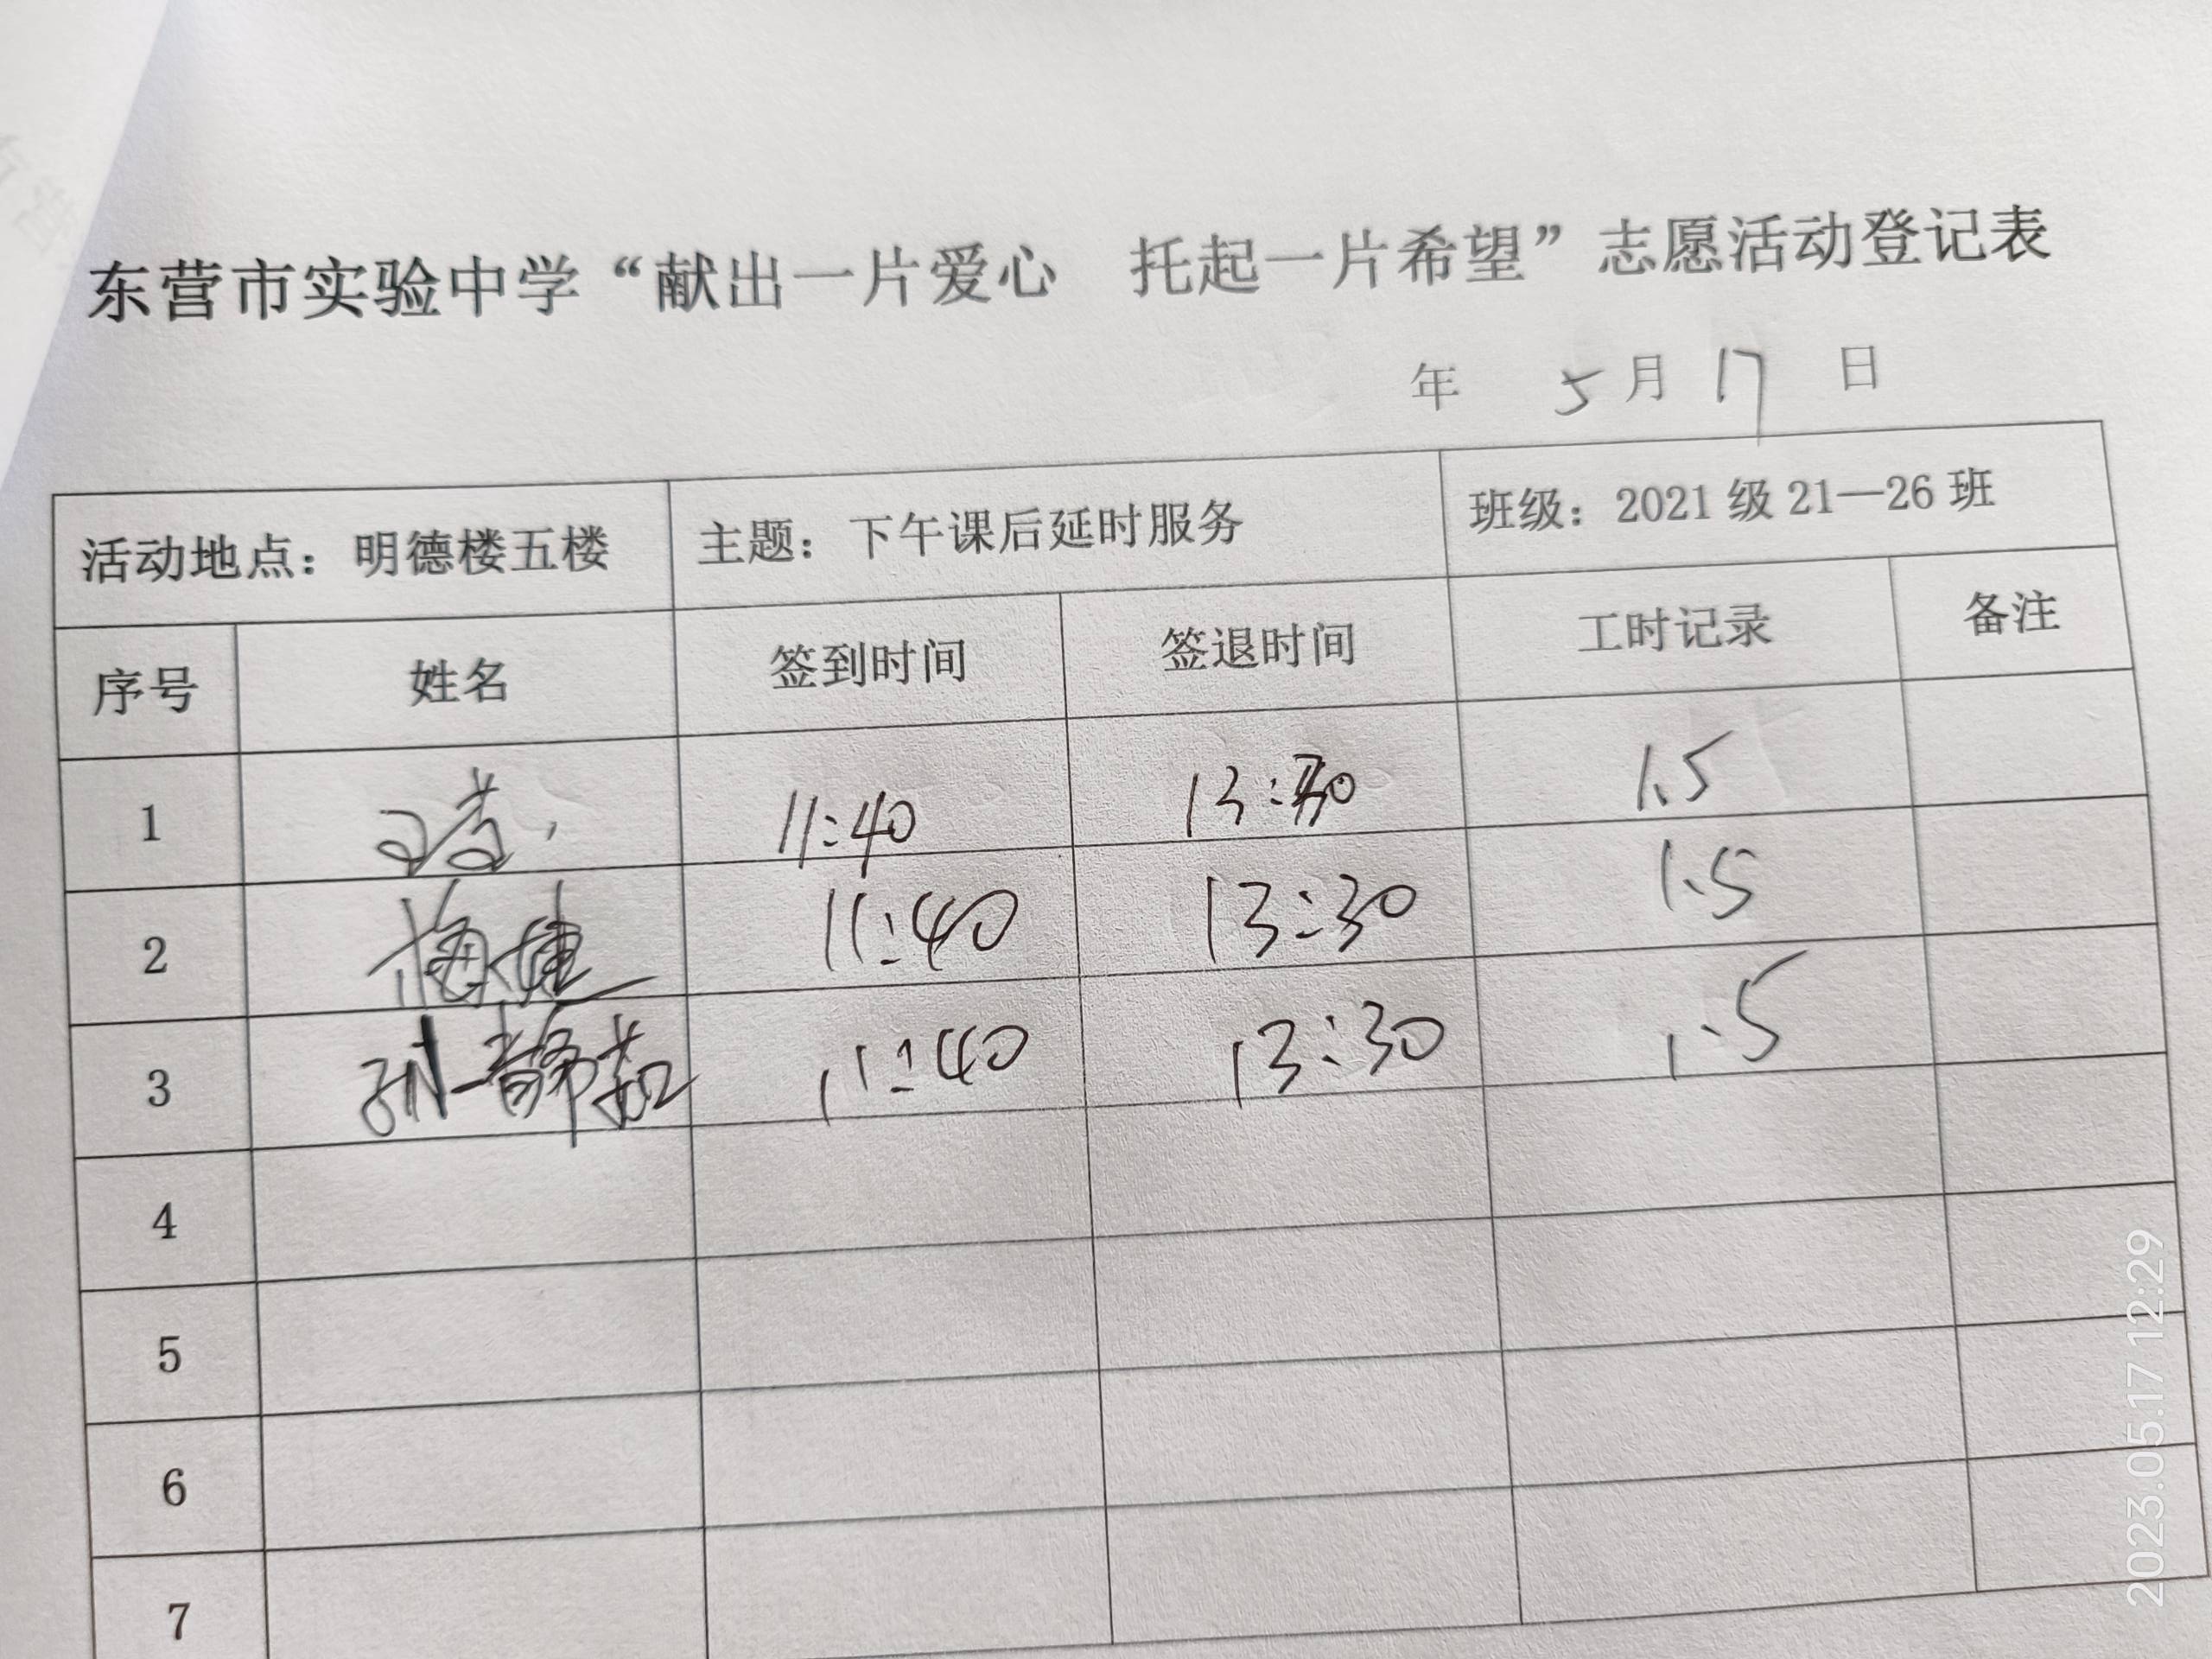 东营市实验中学“献出一片爱心 托起一片希望”志愿活动登记表
年 5月 17 日
活动地点：明德楼五楼 主题：下午课后延时服务 班级：2021级21—26班
序号 姓名 签到时间 签退时间 工时记录 备注
1 11:40 13:30 1.5
2 11:40 13:30 1.5
3 孙静茹 11:40 13:30 1.5
4
5
6
7
2023.05.17 12:29